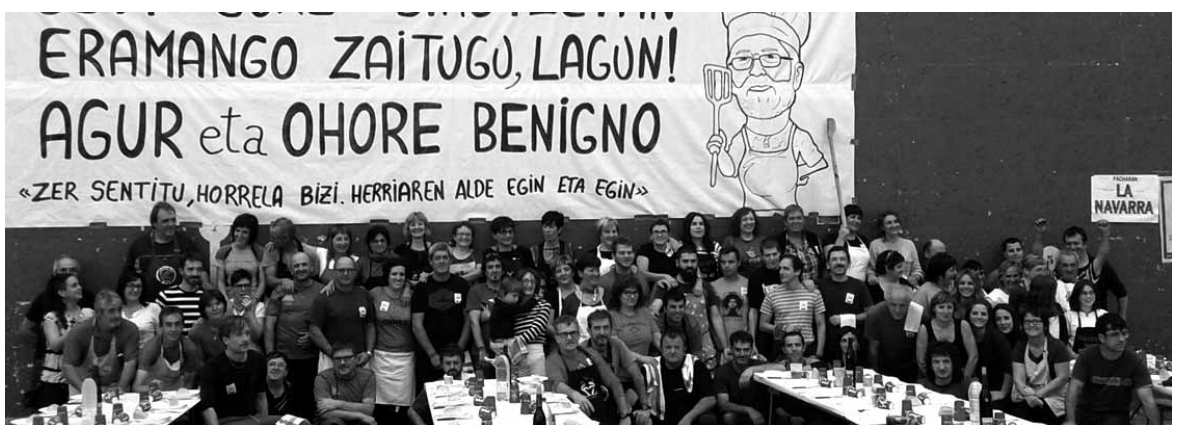 ERAMANGO ZAITUGU, LAGUN!
AGUR eta OHORE BENIGNO
«ZER SENTITU, HORRELA BIZI. HERRIAREN ALDE EGIN ETA EGIN»
PACHARAN
LA
NAVARRA